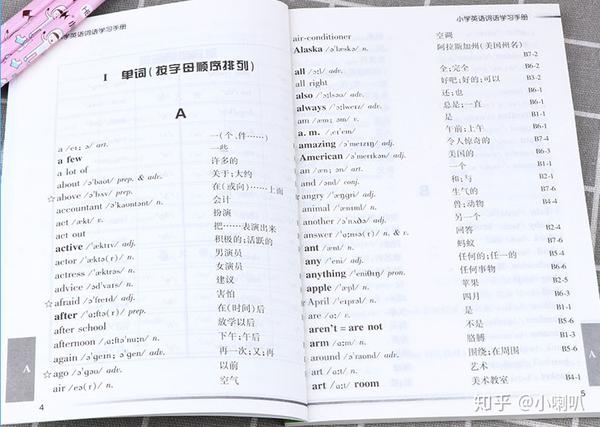 小学英语词语学习手册
Ⅰ 单词(按字母顺序排列)
A
a /eɪ; ə/ art. 一(个、件……)
a few 一些
a lot of 许多的
about /ə'baʊt/ prep. & adv. 关于;大约
☆above /ə'bʌv/ prep. 在(或向)……上面
accountant /ə'kaʊntənt/ n. 会计
act /ækt/ v. 扮演
act out 把……表演出来
active /'æktɪv/ adj. 积极的;活跃的
actor /'æktə(r)/ n. 男演员
actress /'æktrəs/ n. 女演员
advice /əd'vaɪs/ n. 建议
☆afraid /ə'freɪd/ adj. 害怕
after /'ɑːftə(r)/ prep. 在(时间)后
after school 放学以后
afternoon /ˌɑːftə'nuːn/ n. 下午;午后
again /ə'geɪn; ə'gen/ adv. 再一次;又;再
☆ago /ə'gəʊ/ adv. 以前
air /eə(r)/ n. 空气
A
4
小学英语词语学习手册
air-conditioner 空调
Alaska /ə'læskə/ n. 阿拉斯加州(美国州名) B7-2
all /ɔːl/ adv. 全;完全 B6-2
all right 好吧;好的;可以 B3-2
also /'ɔːlsəʊ/ adv. 还;也 B6-1
always /'ɔːlweɪz/ adv. 总是;一直
am /æm; əm/ v. 是
a. m. /ˌeɪ'em/ 午前;上午
amazing /ə'meɪzɪŋ/ adj. 令人惊奇的
American /ə'merɪkən/ adj. 美国的
an /æn; ən/ art. 一个
and /ænd/ conj. 和;与
☆angry /'æŋgri/ adj. 生气的
animal /'ænɪml/ n. 兽;动物
☆another /ə'nʌðə/ adj. 另一个
☆answer /'ɑːnsə(r)/ n. & v. 回答
ant /ænt/ n. 蚂蚁
any /'eni/ adj. 任何的;任一的
anything /'eniθɪŋ/ pron. 任何事物
apple /'æpl/ n. 苹果
☆April /'eɪprəl/ n. 四月
are /ɑː/ v. 是
aren't = are not 不是
arm /ɑːm/ n. 胳膊
☆around /ə'raʊnd/ adv. 围绕;在周围
art /ɑːt/ n. 艺术
art /ɑːt/ room 美术教室 B4-1
5
知乎 @小喇叭